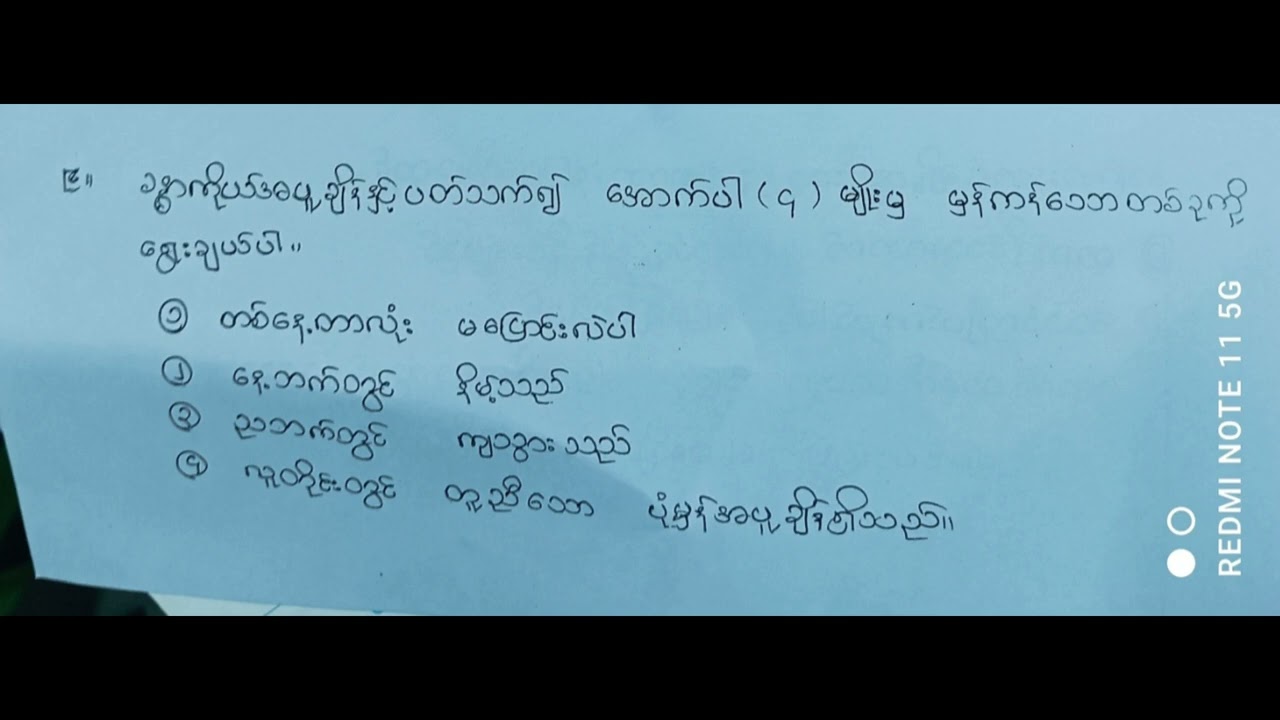 ၉။ ခန္ဓာကိုယ်အပူချိန်နှင့်ပတ်သက်၍ အောက်ပါ (၄) မျိုးမှ မှန်ကန်သောတစ်ခုကို
ရွေးချယ်ပါ။
၁ တစ်နေ့တာလုံး မပြောင်းလဲပါ
၂ နေ့ဘက်တွင် နိမ့်သည်
၃ ညဘက်တွင် ကျသွားသည်
၄ လူတိုင်းတွင် တူညီသော ပုံမှန်အပူချိန်ရှိသည်။
REDMI NOTE 11 5G